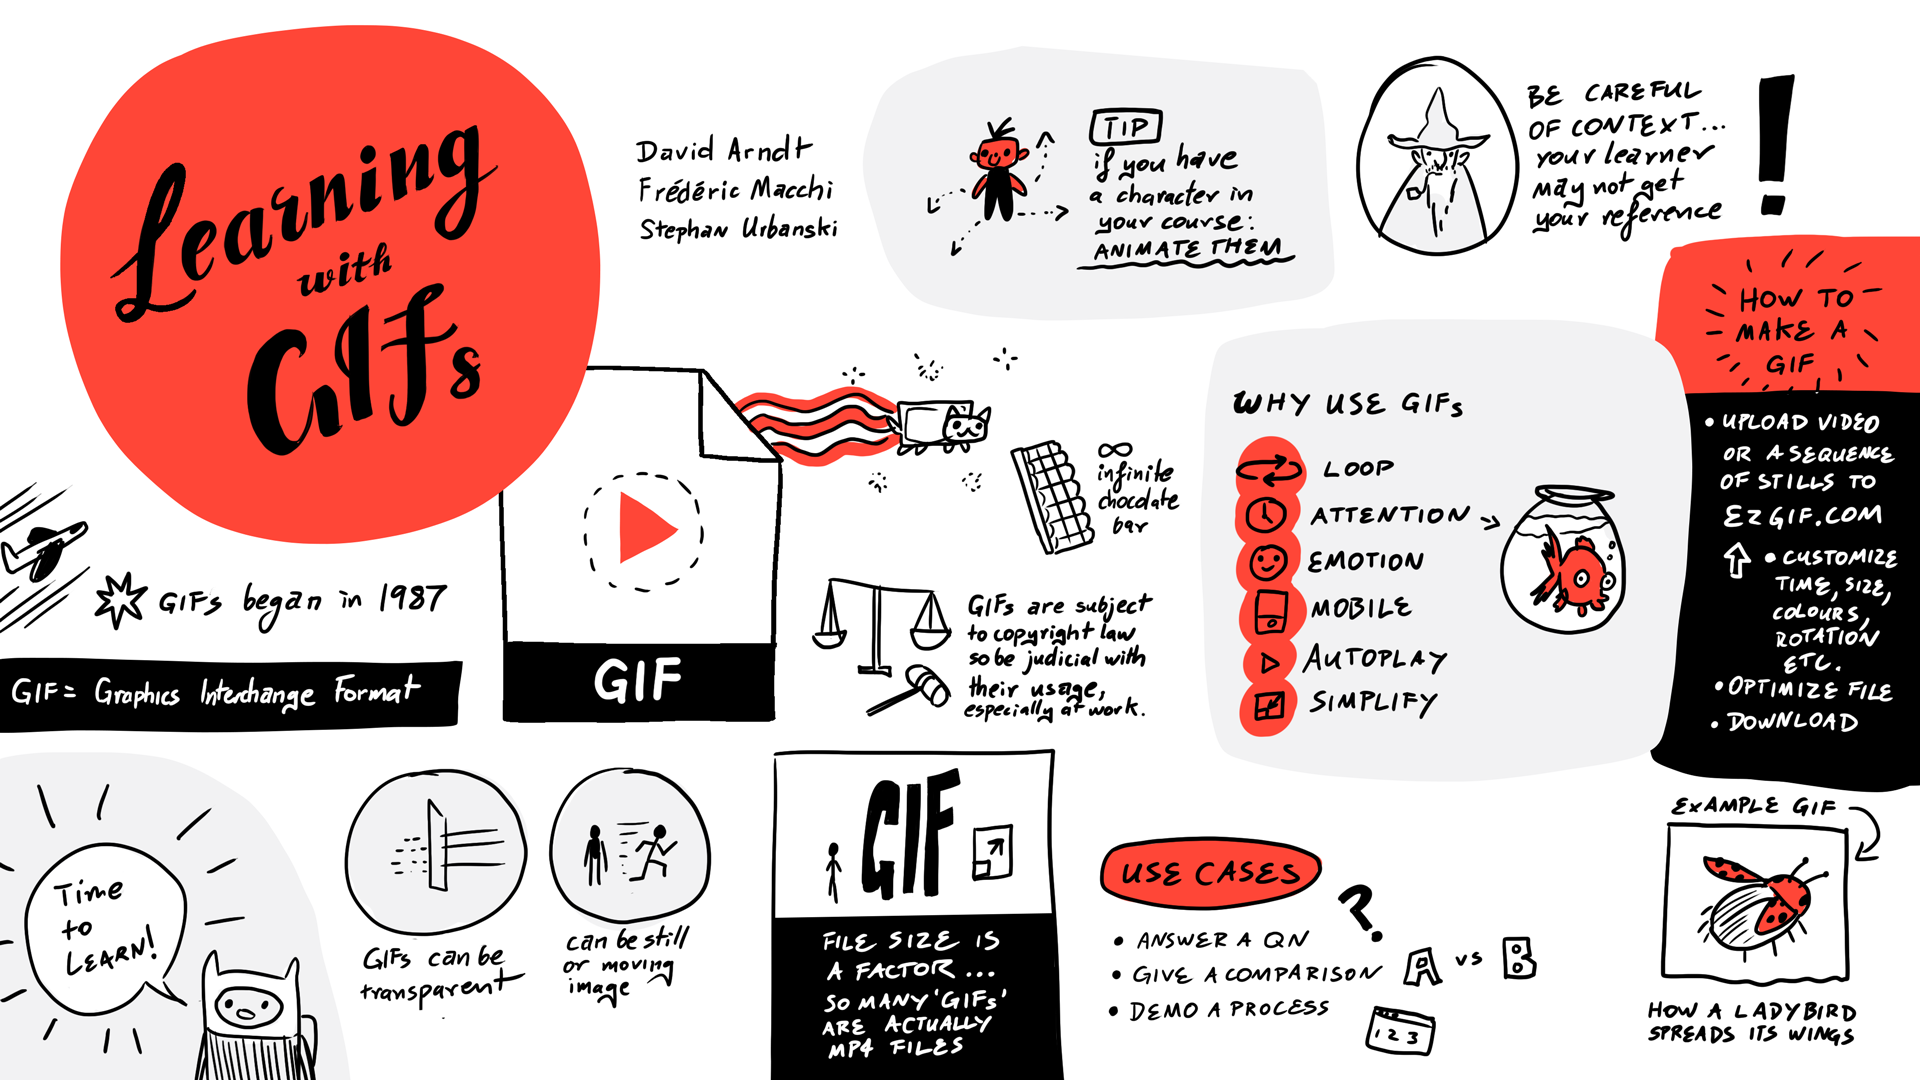 Learning
with
GIFs
David Arndt
Frédéric Macchi
Stephan Urbanski
TIP
if you have
a character in
your course:
ANIMATE THEM
BE CAREFUL
OF CONTEXT...
your learner
may not get
your reference
!
HOW TO
MAKE A
GIF
• UPLOAD VIDEO
OR A SEQUENCE
OF STILLS TO
EZGIF.COM
• CUSTOMIZE
TIME, SIZE,
COLOURS,
ROTATION
ETC.
• OPTIMIZE FILE
• DOWNLOAD
WHY USE GIFs
LOOP
ATTENTION
EMOTION
MOBILE
AUTOPLAY
SIMPLIFY
∞
infinite
chocolate
bar
GIFs began in 1987
GIF = Graphics Interchange Format
GIF
GIFs are subject
to copyright law
so be judicial with
their usage,
especially at work.
Time
to
LEARN!
GIFs can be
transparent
can be still
or moving
image
GIF
FILE SIZE IS
A FACTOR...
SO MANY 'GIFs'
ARE ACTUALLY
MP4 FILES
USE CASES
?
• ANSWER A QN
• GIVE A COMPARISON
A vs B
• DEMO A PROCESS
1 2 3
EXAMPLE GIF
HOW A LADYBIRD
SPREADS ITS WINGS